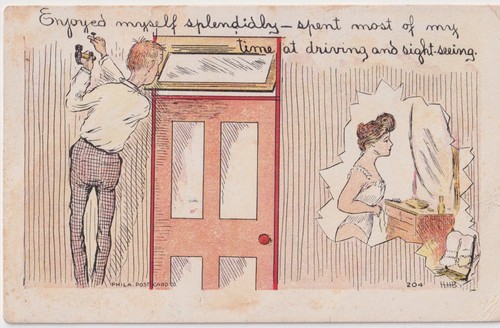 Enjoyed myself splendidly — spent most of my
time at driving and sight-seeing.
PHILA. POST CARD CO.
204
HHB